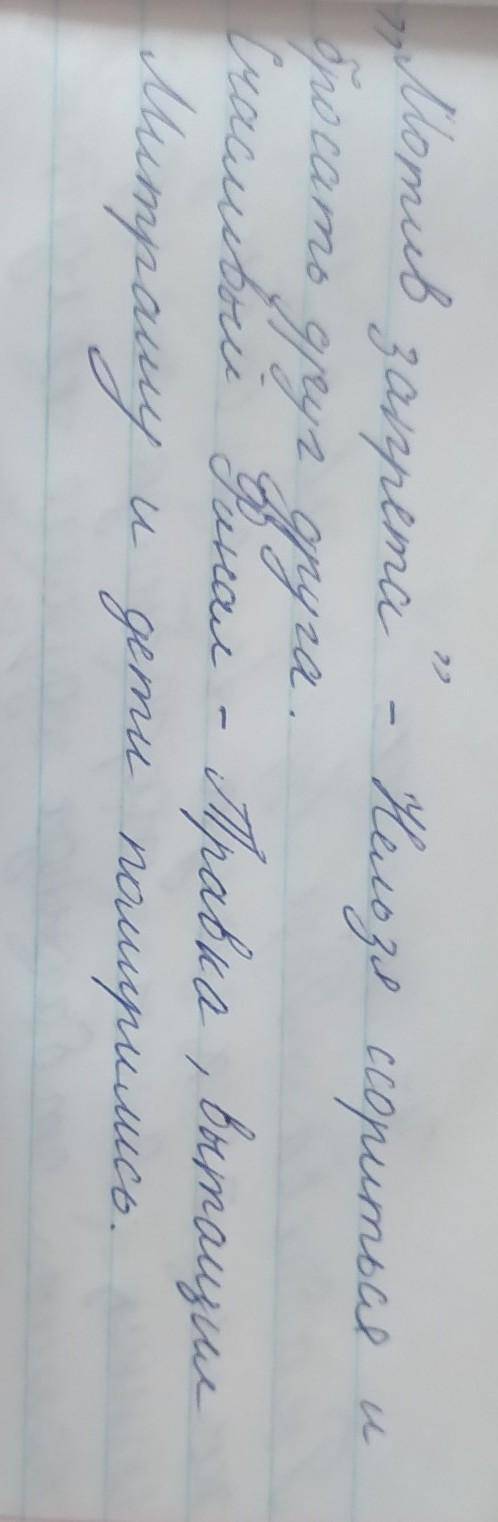 „Мотив запрета" - Нельзя ссориться и
бросать друг друга.
Счасливый Финал - Травка, вытащил
Митрашу и дети помирились.